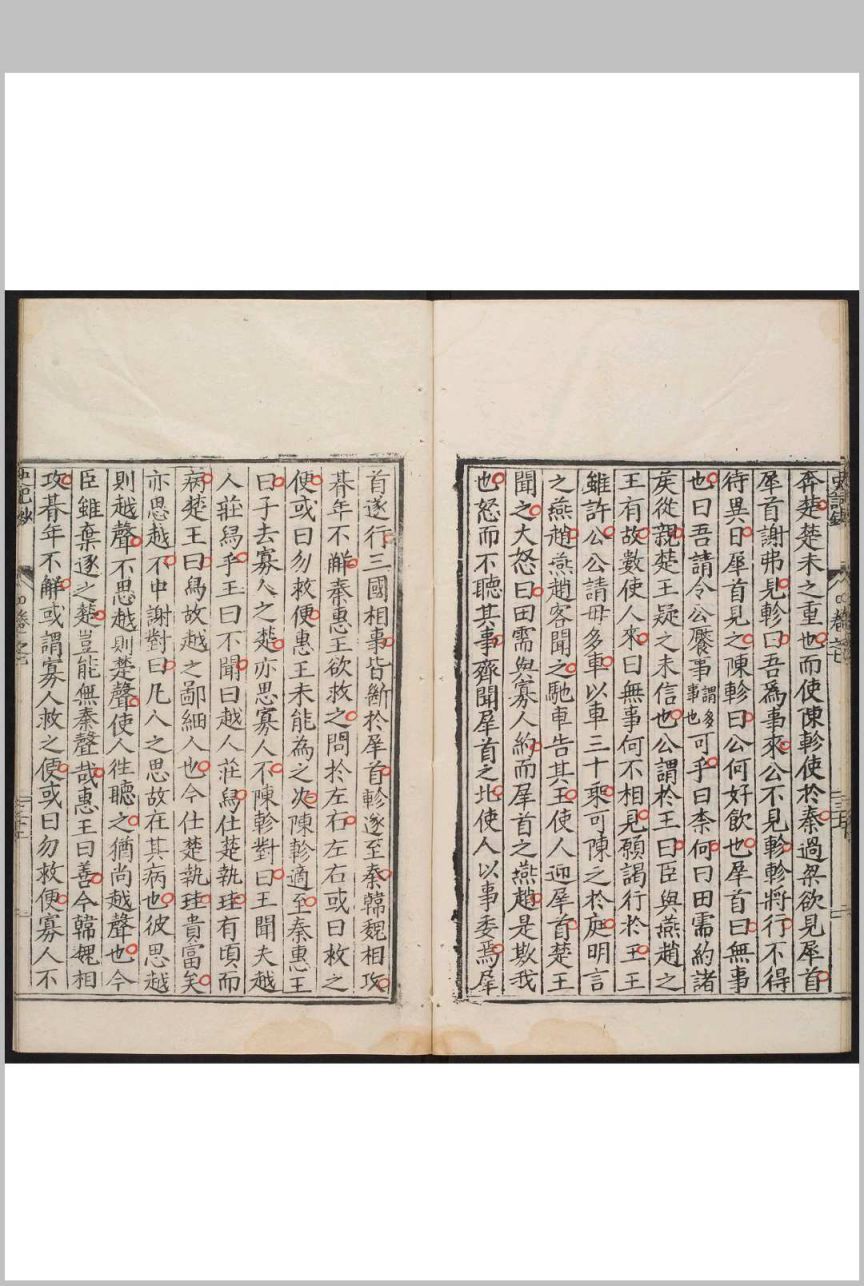 奔楚楚未之重也而使陳軫使於秦過梁欲見犀首
犀首謝弗見軫曰吾爲事來公不見軫軫將行不得
待異日犀首見之陳軫曰公何好飲也犀首曰無事
也曰吾請令公饜事謂多事也可乎曰柰何曰田需約諸
矦從親楚王疑之未信也公謂於王曰臣與燕趙之
王有故數使人來曰無事何不相見願謁行於王王
雖許公公請毋多車以車三十乘可陳之於庭明言
之燕趙燕趙客聞之馳車告其王使人迎犀首楚王
聞之大怒曰田需與寡人約而犀首之燕趙是欺我
也怒而不聽其事齊聞犀首之北使人以事委焉犀
首遂行三國相事皆斷於犀首軫遂至秦韓魏相攻
朞年不解秦惠王欲救之問於左右左右或曰救之
便或曰勿救便惠王未能為之決陳軫適至秦惠王
曰子去寡人之楚亦思寡人不陳軫對曰王聞夫越
人莊舄乎王曰不聞曰越人莊舄仕楚執珪有頃而
病楚王曰舄故越之鄙細人也今仕楚執珪貴富矣
亦思越不中謝對曰凡人之思故在其病也彼思越
則越聲不思越則楚聲使人徃聽之猶尚越聲也今
臣雖棄逐之楚豈能無秦聲哉惠王曰善今韓魏相
攻朞年不解或謂寡人救之便或曰勿救便寡人不
史記鈔